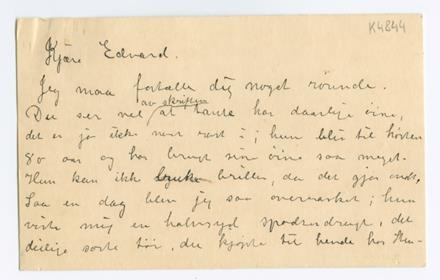 K4844
Kjære Edvard.
Jeg maa fortælle dig noget rørende.
av skriften
Du ser vel at tante har daarlige øine,
det er jo ikke noe rart i; hun blir til høsten
80 aar og har brugt sine øine saa meget.
Hun kan ikke bruke briller, da det gjør ondt.
Saa en dag blev jeg saa overrasket; hun
viste mig en halvsyd spaserdragt, det
deilige sorte tøi, du kjøpte til hende hos Ste-